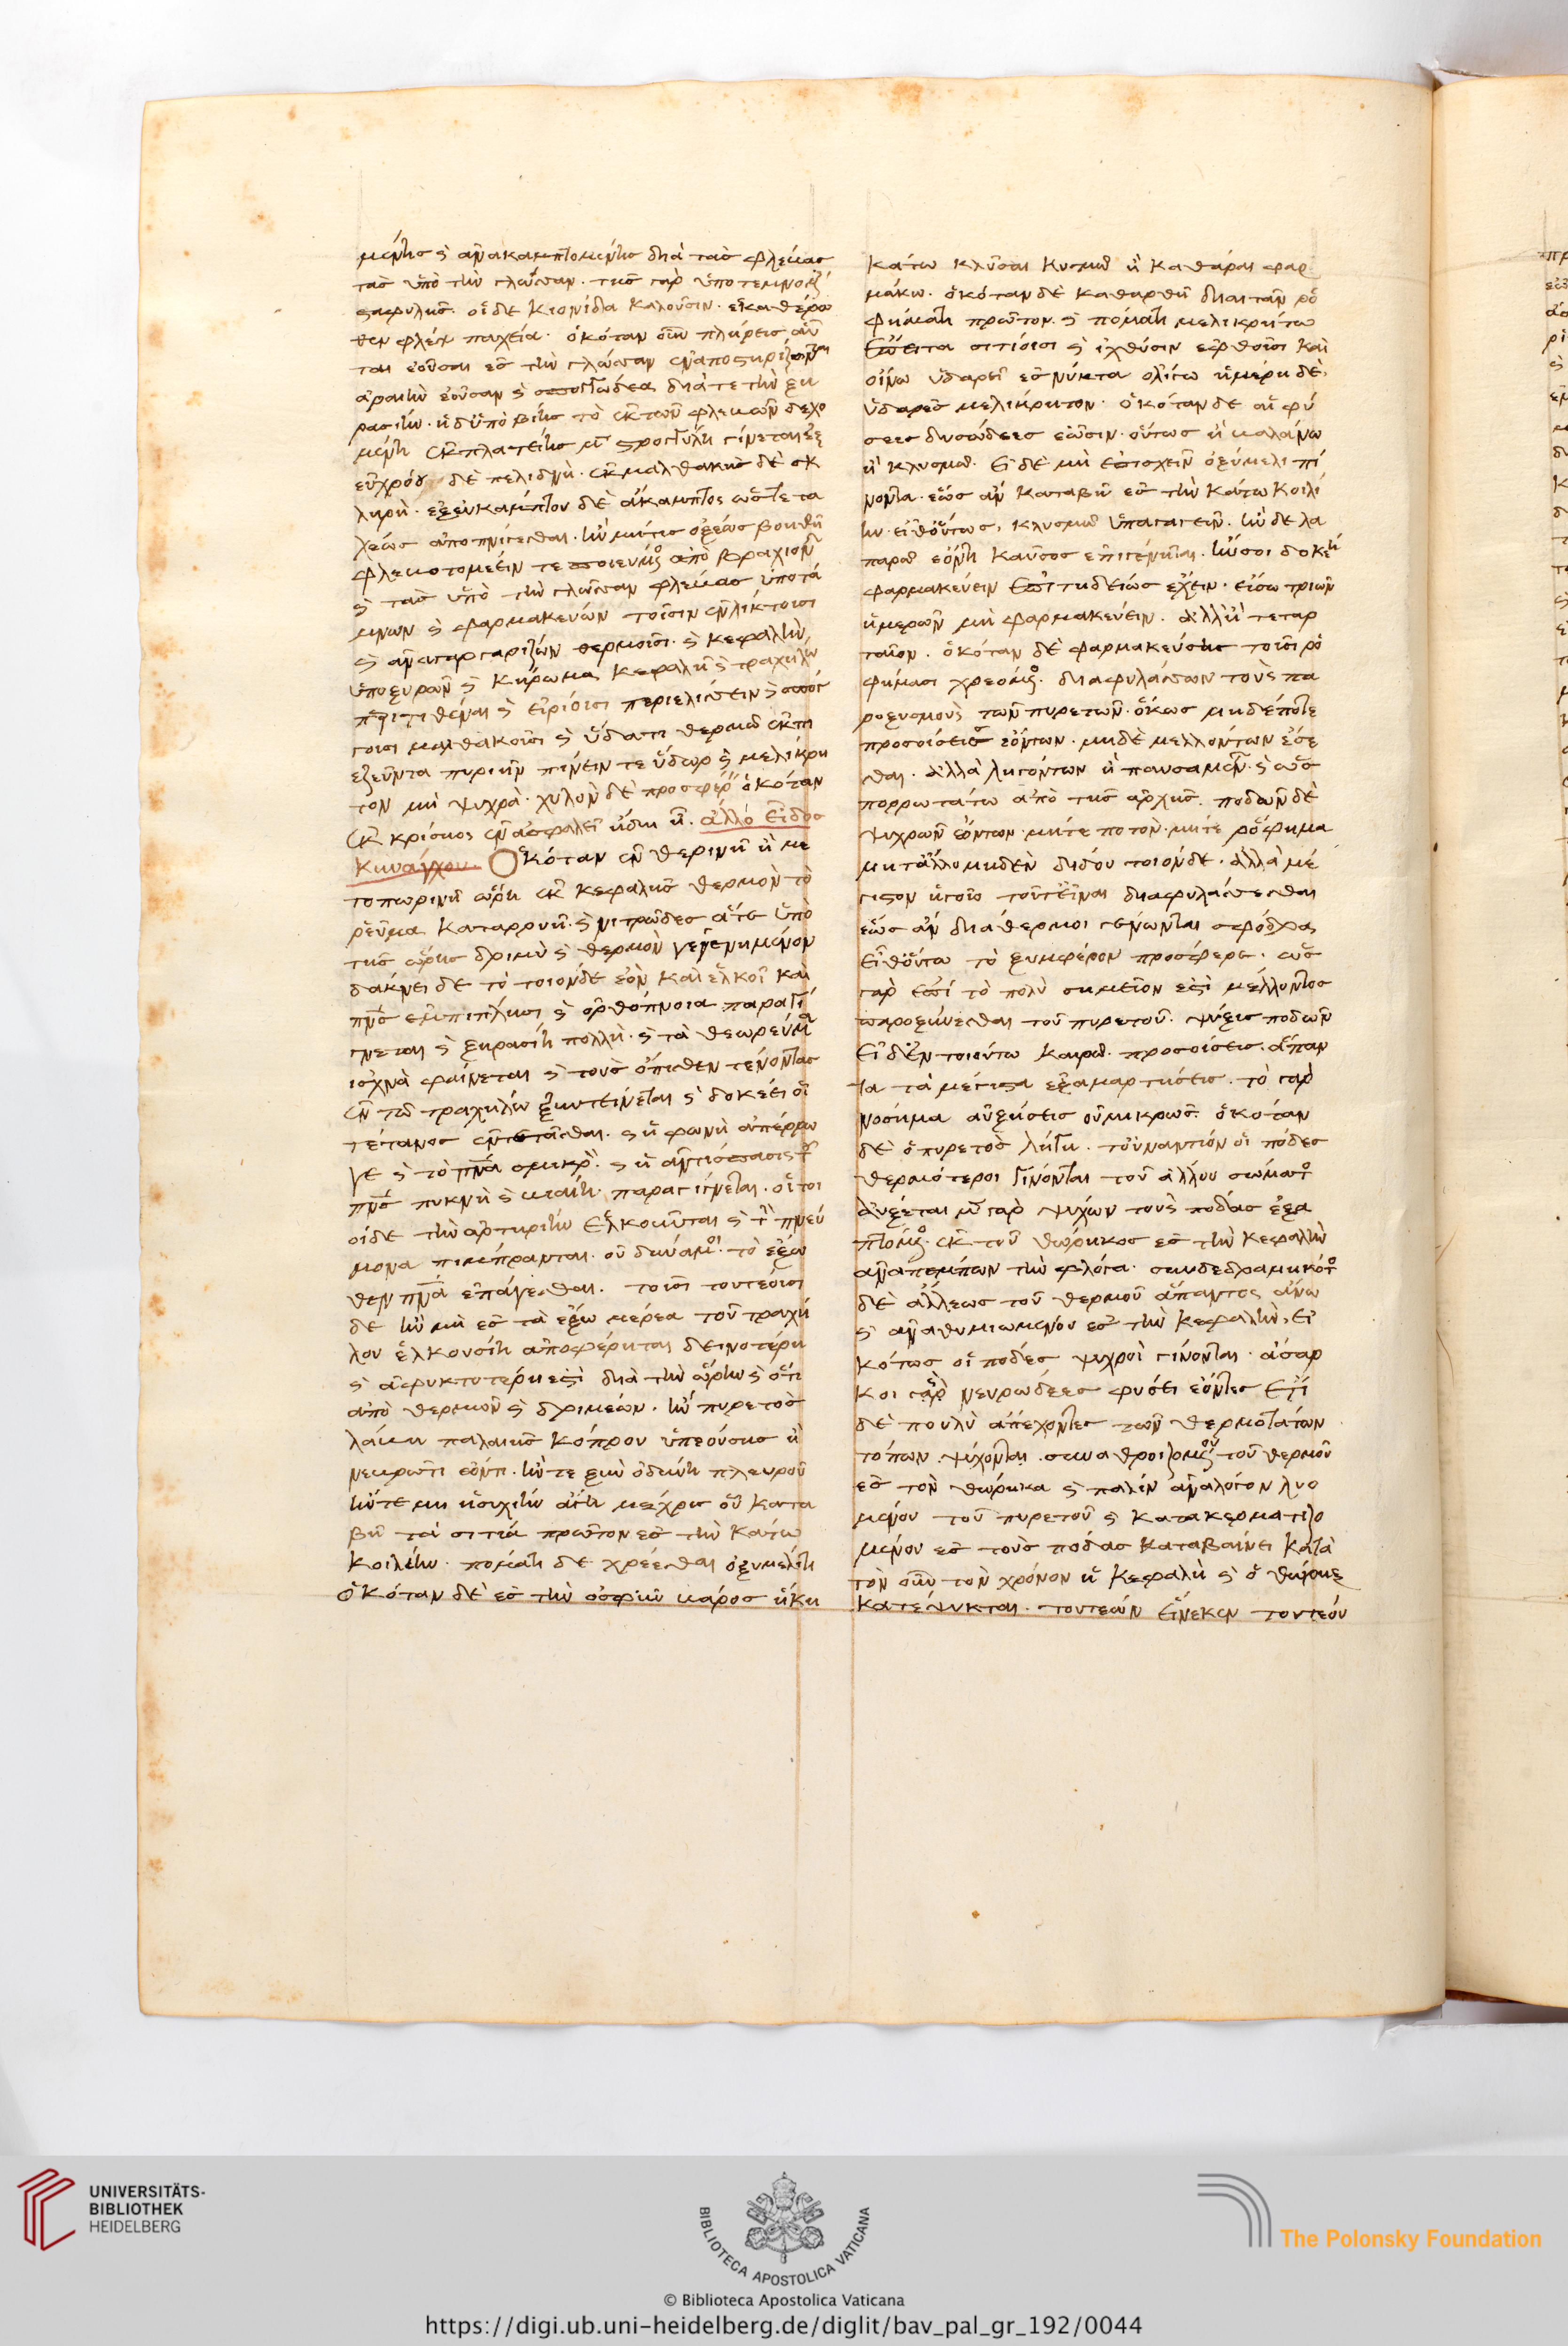 μένης καὶ ἀνακαμπτομένης διὰ τὰς φλέβας
τὰς ὑπὸ τὴν γλῶσσαν. τῆς γὰρ ὑποτεμνομένης
σταφυλῆς. οἱ δὲ κιονίδα καλοῦσιν. ἑκατέρω
θεν φλὲψ παχεία. ὁκόταν οὖν πλήρεις
ἐοῦσαι ἐς τὴν γλῶσσαν ἐναποστηρίζωνται
ἀραιὴν ἐοῦσαν καὶ σπογγώδεα διά τε τὴν ξη
ρασίην. ὑπὸ βίης τὸ ἐκ τῶν φλεβῶν δεχο
μένη ἐκ πλατείης μὲν στρογγύλη γίνεται ἐξ
εὐχρόου δὲ πελιδνή. ἐκ μαλθακῆς δὲ σκ
ληρή. ἐξ εὐκάμπτου δὲ ἄκαμπτος ὥστε τα
χέως ἀποπνίγεσθαι. ἢν μή τις ὀξέως βοηθῇ
φλεβοτομέειν τε ποιεύμενος ἀπὸ βραχιόνων
καὶ τὰς ὑπὸ τὴν γλῶσσαν φλέβας ὑποτά
μνων καὶ φαρμακεύων τοῖσιν ἐνλικτοῖσι
καὶ ἀναγαργαρίζων θερμοῖσι. καὶ κεφαλὴν
ὑποξυρᾶν καὶ κήρωμα κεφαλῇ καὶ τραχήλῳ
περιτιθέναι καὶ εἰρίοισι περιελίσσειν καὶ σπόγ
γοισι μαλθακοῖσι καὶ ὕδατι θερμῷ ἐκπι
εζεῦντα πυριῆν πίνειν τε ὕδωρ καὶ μελίκρη
τον μὴ ψυχρά. χυλὸν δὲ προσφέρειν ὁκόταν
ἐκ κρίσιος ἐν ἀσφαλεῖ ἤδη ᾖ. ἄλλο εἶδος
κυνάγχου Ὁκόταν ἐν θερινῇ ἢ με
τοπωρινῇ ὥρῃ ἐκ κεφαλῆς θερμὸν τὸ
ῥεῦμα καταρρυῇ. καὶ νιτρῶδες ἅτε ὑπὸ
τῆς ὥρης δριμὺ καὶ θερμὸν γεγενημένον
δάκνει δὲ τὸ τοιόνδε ἐὸν καὶ ἑλκοῖ καὶ
πνεύματος ἐμπιπλῆσι καὶ ὀρθόπνοια παραγί
γνεται καὶ ξηρασίη πολλή. καὶ τὰ θεωρεύμενα
ἰσχνὰ φαίνεται καὶ τοὺς ὄπισθεν τένοντας
ἐν τῷ τραχήλῳ ξυντείνεται καὶ δοκέει οἱ
τέτανος ἐντετάσθαι. καὶ ἡ φωνὴ ἀπέρρω
γε καὶ τὸ πνεῦμα σμικρόν. καὶ ἡ ἀντίσπασις τοῦ
πνεύματος πυκνὴ καὶ βιαίη παραγίγνεται. οἱ τοι
οίδε τὴν ἀρτηρίην ἑλκοῦνται καὶ τὸν πνεύ
μονα πίμπρανται. οὐ δυνάμενοι τὸ ἔξω
θεν πνεῦμα ἐπάγεσθαι. τοῖσι τουτέοισι
δὲ ἢν μὴ ἐς τὰ ἔξω μέρεα τοῦ τραχή
λου ἑλκουσίη ἀποφέρηται δεινοτέρη
καὶ ἀφυκτοτέρη ἐστὶ διὰ τὴν ὥρην καὶ ὅτι
ἀπὸ θερμοῦ καὶ δριμέων. ἢν πυρετὸς
λάβῃ παλαιῆς κόπρου ὑπεούσης ἢ
νεοβρῶτι ἐόντι. ἤν τε ξὺν ὀδύνῃ πλευροῦ
ἤν τε μὴ ἡσυχίην ἄγῃ μέχρις οὗ κατα
βῇ τὰ σιτία πρῶτον ἐς τὴν κάτω
κοιλίην. πόματι δὲ χρέεσθαι ὀξυμέλιτι
ὁκόταν δὲ ἐς τὴν ὀσφῦν βάρος ἥκῃ
κάτω κλῦσαι κλυσμῷ ἢ καθῆραι φαρ
μάκῳ. ὁκόταν δὲ καθαρθῇ διαιτᾶν ῥο
φήματι πρῶτον. καὶ πόματι μελικρήτῳ
ἔπειτα σιτίοισι καὶ ἰχθύσιν ἑφθοῖσι καὶ
οἴνῳ ὑδαρεῖ ἐς νύκτα ὀλίγῳ ἡμέρη δὲ
ὑδαρὲς μελίκρητον. ὁκόταν δὲ αἱ φῦ
σεες δυσώδεες ἔωσιν. οὕτως ἢ βαλάνῳ
ἢ κλυσμῷ. εἰ δὲ μὴ ἐπισχεῖν ὀξύμελι πί
νοντα. ἕως ἂν καταβῇ ἐς τὴν κάτω κοιλί
ην. εἶθ᾽ οὕτως. κλυσμῷ ὑπαγαγεῖν. ἢν δὲ λα
παρῷ ἐόντι καῦσος ἐπιγένηται. ἤν σοι δοκέῃ
φαρμακεύειν ἐπιτηδείως ἔχειν. εἴσω τριῶν
ἡμερῶν μὴ φαρμακεύειν. ἀλλ᾽ ἢ τεταρ
ταῖον. ὁκόταν δὲ φαρμακεύσῃς τοῖσι ῥο
φήμασι χρεόμενος. διαφυλάσσων τοὺς πα
ροξυσμοὺς τῶν πυρετῶν. ὅκως μηδέποτε
προσοίσεις ἐόντων. μηδὲ μελλόντων ἔσε
σθαι. ἀλλὰ ληγόντων ἢ παυσαμένων. καὶ ὡς
πορρωτάτω ἀπὸ τῆς ἀρχῆς. ποδῶν δὲ
ψυχρῶν ἐόντων μήτε ποτὸν. μήτε ῥόφημα
μήτ᾽ ἄλλο μηδὲν δίδου τοιόνδε. ἀλλὰ μέ
γιστον ἡγοῦ τοῦτ᾽ εἶναι διαφυλάσσεσθαι
ἕως ἂν διάθερμοι γένωνται σφόδρα
εἶθ᾽ οὕτω τὸ ξυμφέρον πρόσφερε. ὡς
γὰρ ἐπὶ τὸ πολὺ σημεῖόν ἐστι μέλλοντος
παροξύνεσθαι τοῦ πυρετοῦ. ψύξις ποδῶν
εἰ δ᾽ ἐν τοιούτῳ καιρῷ. προσοίσεις. ἅπαν
τα τὰ μέγιστα ἐξαμαρτήσεις. τὸ γὰρ
νόσημα αὐξήσεις οὐ μικρῶς. ὁκόταν
δὲ ὁ πυρετὸς λήγῃ. τοὐναντίον οἱ πόδες
θερμότεροι γίνονται τοῦ ἄλλου σώματος
αὔξεται μὲν γὰρ ψύχων τοὺς πόδας ἐξα
πτόμενος. ἐκ τοῦ θώρηκος ἐς τὴν κεφαλὴν
ἀναπέμπων τὴν φλόγα. συνδεδραμηκότος
δὲ ἁλέως τοῦ θερμοῦ ἅπαντος ἄνω
καὶ ἀναθυμιωμένου ἐς τὴν κεφαλὴν. εἰ
κότως οἱ πόδες ψυχροὶ γίνονται. ἄσαρ
κοι γὰρ νευρώδεες φύσει ἐόντες ἔτι
δὲ πουλὺ ἀπέχοντες τῶν θερμοτάτων
τόπων. ψύχονται. συναθροιζομένου τοῦ θερμοῦ
ἐς τὸν θώρηκα καὶ πάλιν ἀνάλογον λυο
μένου τοῦ πυρετοῦ καὶ κατακερματιζο
μένου ἐς τοὺς πόδας καταβαίνει κατὰ
τὸν οὖν τὸν χρόνον ἡ κεφαλὴ καὶ ὁ θώρηξ
κατέψυκται. τουτέων εἵνεκεν τουτέου
UNIVERSITÄTS-
BIBLIOTHEK
HEIDELBERG
BIBLIOTECA APOSTOLICA VATICANA
The Polonsky Foundation
© Biblioteca Apostolica Vaticana
https://digi.ub.uni-heidelberg.de/diglit/bav_pal_gr_192/0044